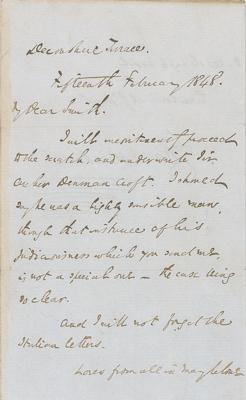 Devonshire Terrace.
Fifteenth February 1848.
My Dear Smith.
I will
to the scratch, and underwrite Sir
Denman Croft. I should
say he was a highly sensible man,
though that instance of his
judiciousness which you send me,
is not a special one – the case being
so clear.
And I will not forget the
Italian letters.
Loves from all in